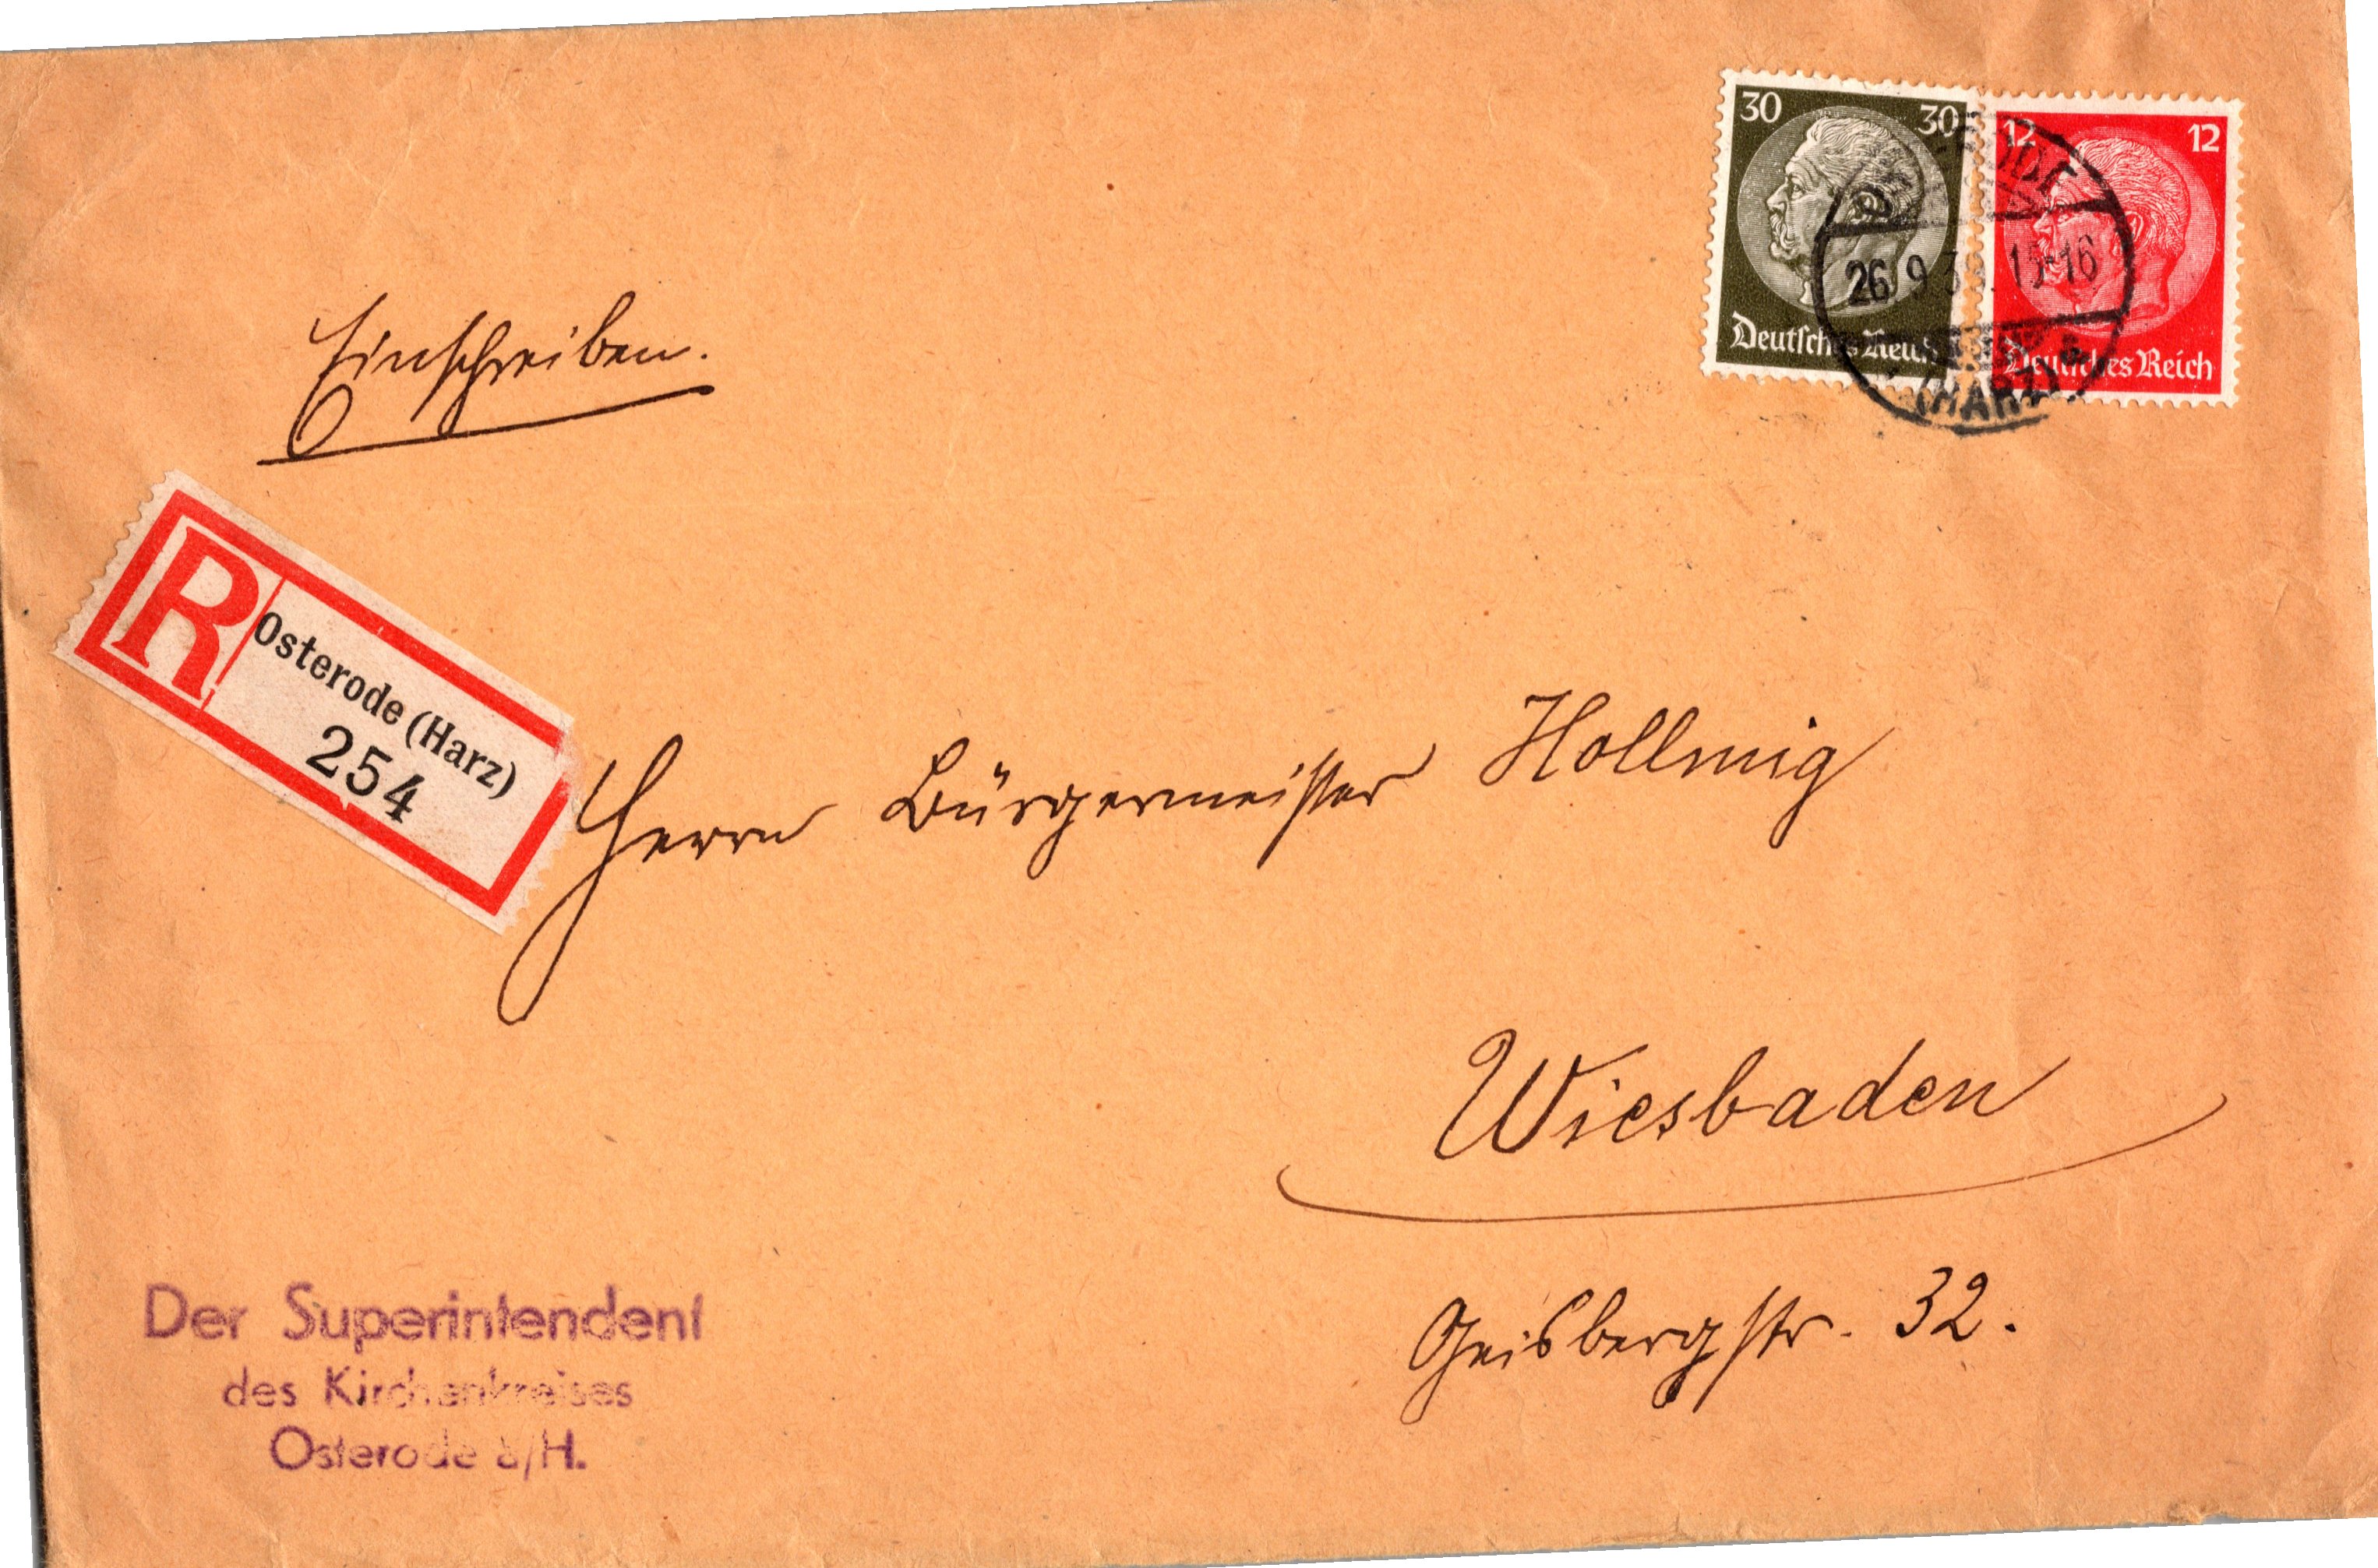 30 30
Deutsches Reich
12 12
Deutsches Reich
26.9.3 15-16
(HARZ)
Einschreiben.
R
Osterode (Harz)
254
Herrn Bürgermeister Hollmig
Wiesbaden
Geisbergstr. 32.
Der Superintendent
des Kirchenkreises
Osterode a/H.